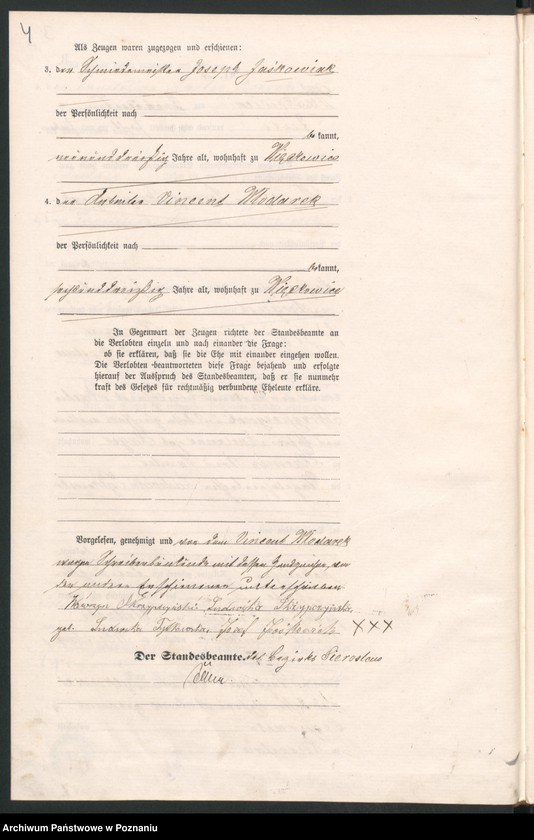 4
Als Zeugen waren zugezogen und erschienen:
3. der Schmiedemeister Joseph Jaśkowiak
der Persönlichkeit nach
bekannt,
neununddreißig Jahre alt, wohnhaft zu Więckowice
4. der Arbeiter Vincent Wlodarek
der Persönlichkeit nach
bekannt,
sechsunddreißig Jahre alt, wohnhaft zu Więckowice
In Gegenwart der Zeugen richtete der Standesbeamte an
die Verlobten einzeln und nach einander die Frage:
ob sie erklären, daß sie die Ehe mit einander eingehen wollen.
Die Verlobten beantworteten diese Frage bejahend und erfolgte
hierauf der Ausspruch des Standesbeamten, daß er sie nunmehr
kraft des Gesetzes für rechtmäßig verbundene Eheleute erkläre.
Vorgelesen, genehmigt und von dem Vincent Wlodarek
wegen Schreibensunkunde mit dessen Handzeichen, von
den anderen Erschienenen unterschrieben
Skrzypczyński Ludwika Skrzypczyńska,
geb. Józef Jaśkowiak XXX
Der Standesbeamte. des Bezirks
Archiwum Państwowe w Poznaniu